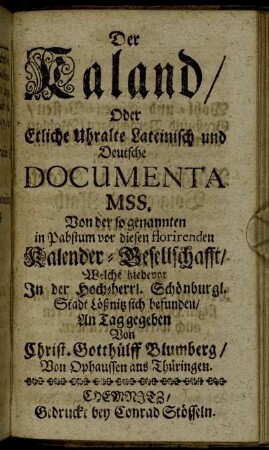 Der
Kaland/
Oder
Etliche Uhralte Lateinisch und
Deutsche
DOCUMENTA
MSS.
Von der so genannten
in Pabstum vor diesen florirenden
Kalender-Gesellschafft/
Welche hiebevor
In der Hoch-herrl. Schönburgl.
Stadt Lößnitz sich befunden/
An Tag gegeben
Von
Christ. Gotthülff Blumberg/
Von Ophaussen aus Thüringen.
CHEMNITZ/
Gedruckt bey Conrad Stösseln.